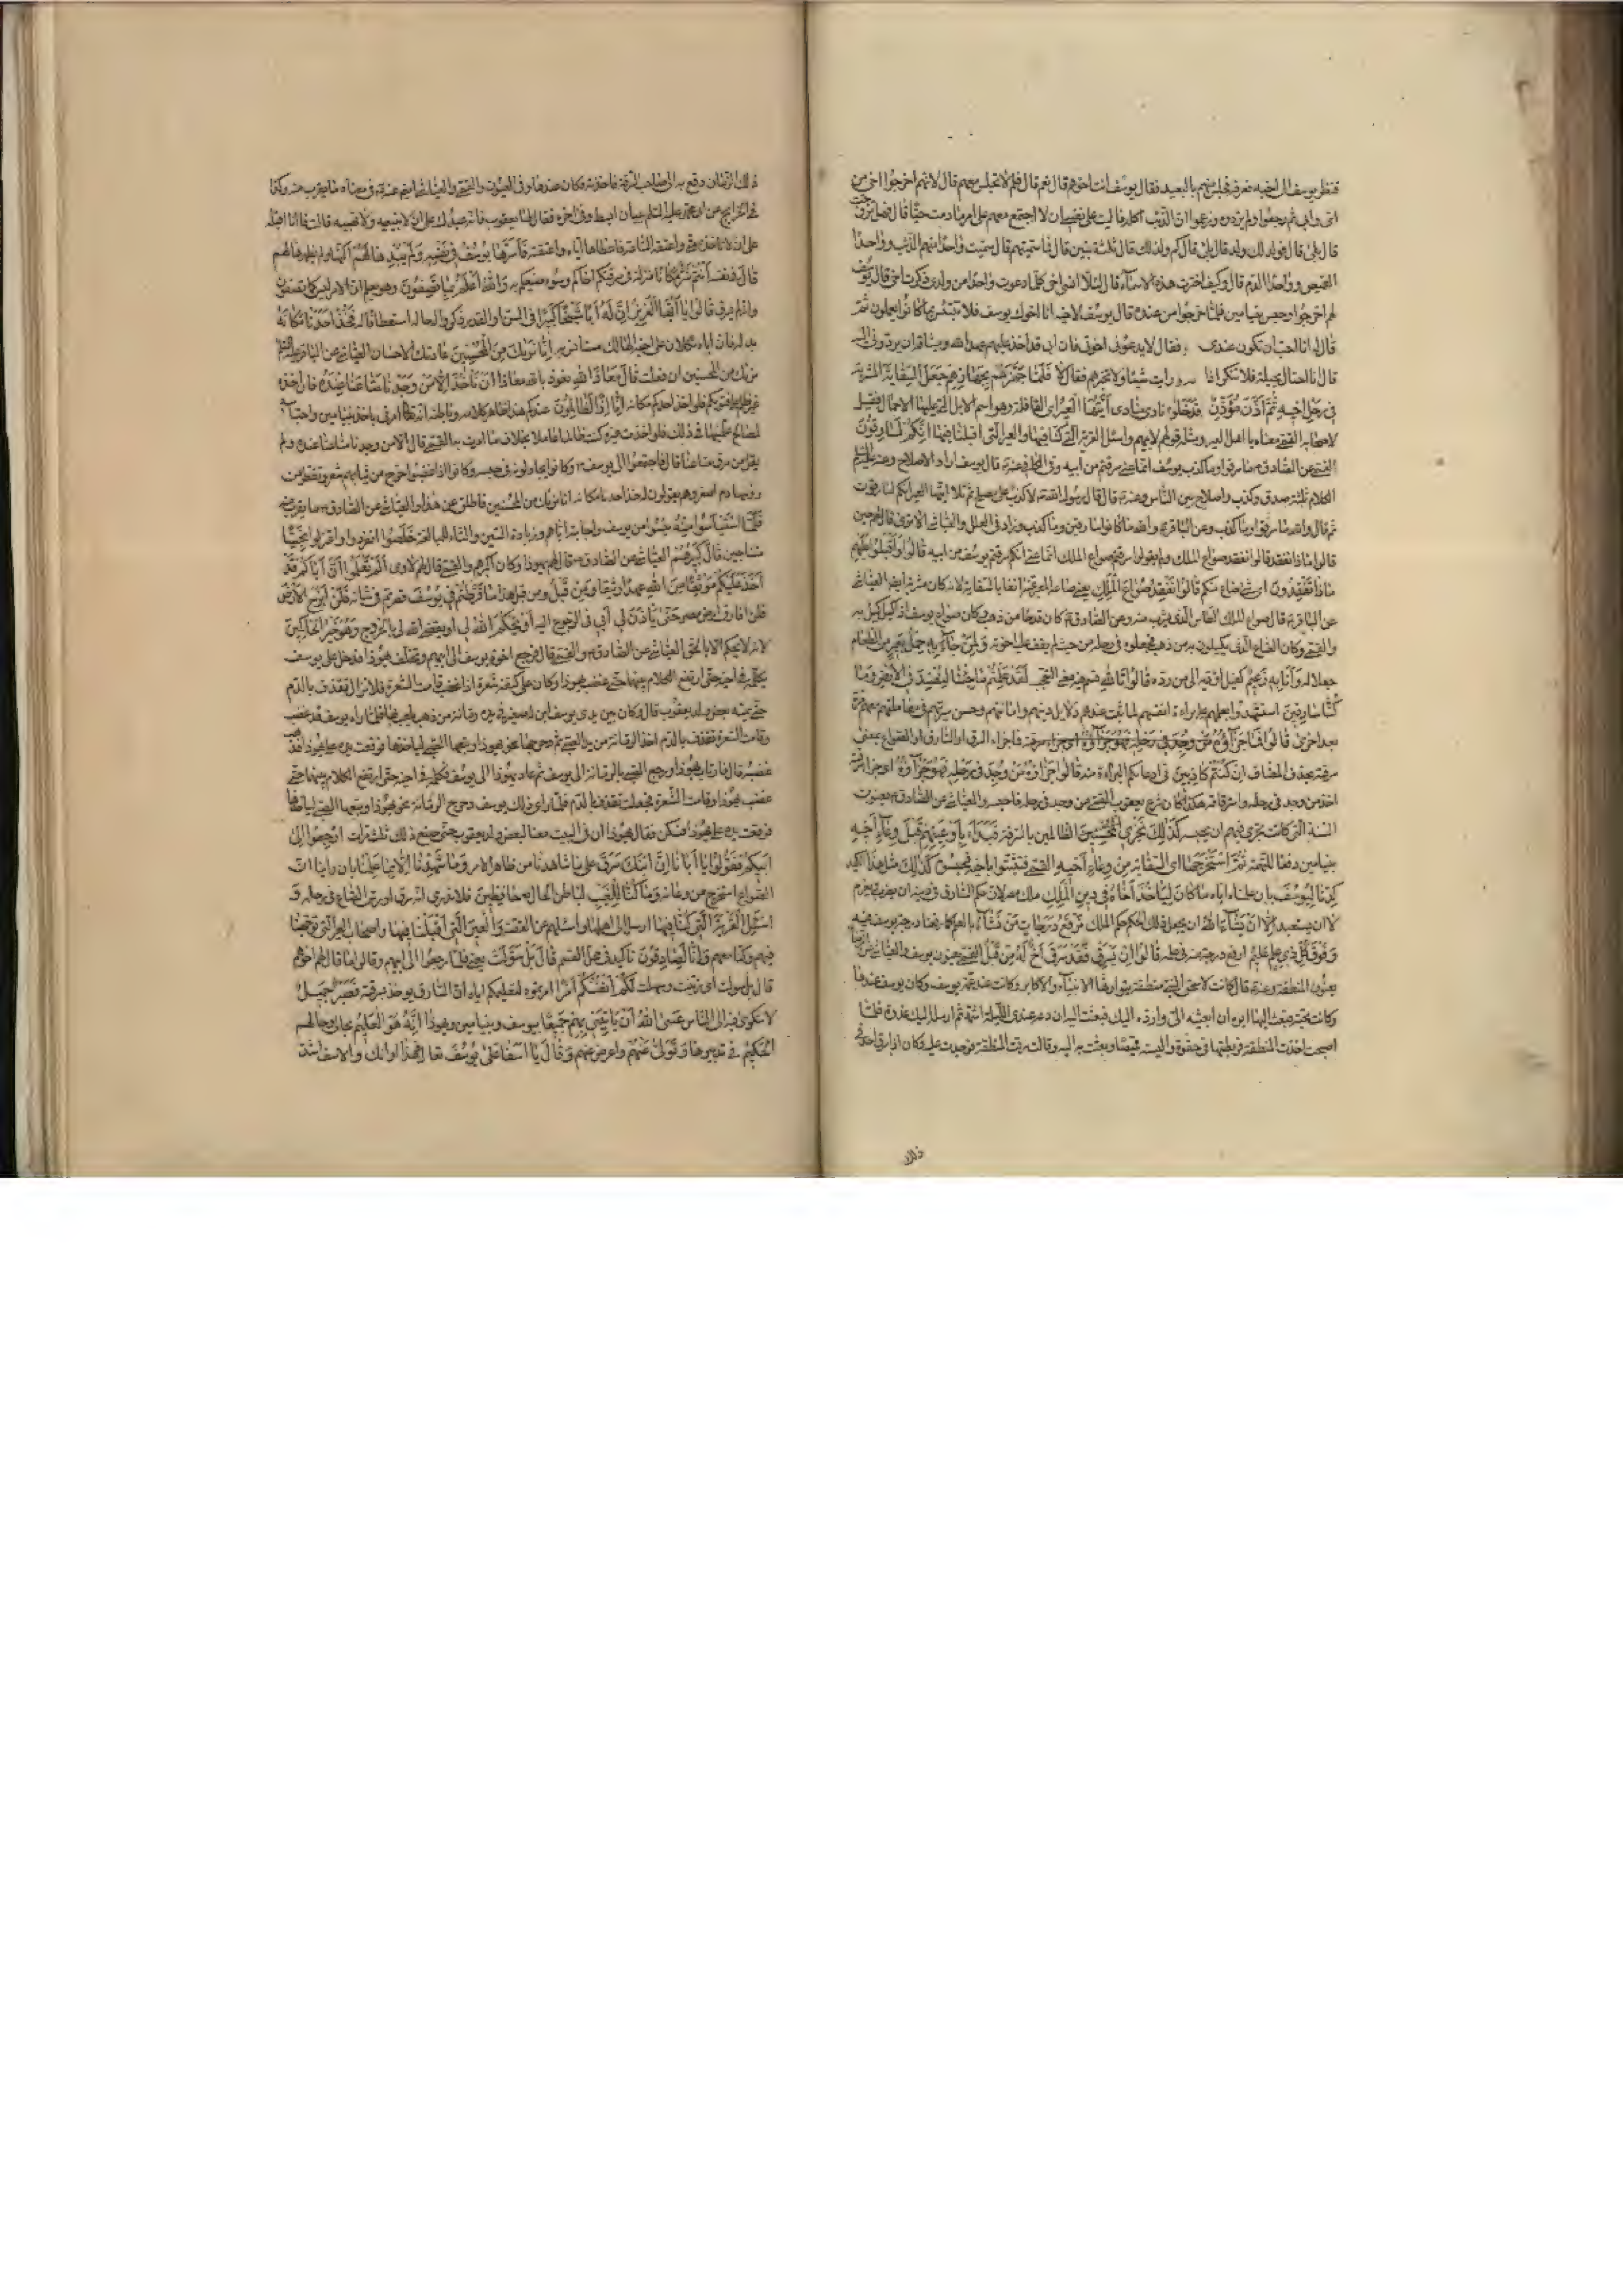 فنظر يوسف الى اخيه فعرفه فجلس منهم بالبعيد فقال يوسف انت اخوهم قال نعم قال فلم لا تجلس معهم قال لانهم اخرجوا اخى من
امى وابى ثم رجعوا ولم يردوه وزعموا ان الذئب اكله فاليت على نفسى ان لا اجتمع معهم على امر ما دمت حيا قال فهل تزوجت
قال بلى قال فولد لك ولد قال بلى قال كم ولد لك قال ثلثة بنين قال فما سميتهم قال سميت واحدا منهم الذئب وواحدا
القميص وواحدا الدم قال وكيف اخترت هذه الاسماء قال لئلا انسى اخى كلما دعوت واحدا من ولدى ذكرت اخى قال يوسف
لهم اخرجوا وحبس بنيامين فلما خرجوا من عنده قال يوسف لاخيه انا اخوك يوسف فلا تبتئس بما كانوا يعملون ثم
قال له انا احب ان تكون عندى فقال لا يدعونى اخوتى فان ابى قد اخذ عليهم عهد الله وميثاقه ان يردونى اليه
قال انا احتال بحيلة فلا تنكر اذا رايت شيئا ولا تخبرهم فقال لا فلما جهزهم بجهازهم جعل السقاية المشربة
فى رحل اخيه ثم اذن مؤذن نادى مناد ايتها العير اى القافلة وهو اسم الابل التى عليها الاحمال فقيل
لاصحابها القمى معناه يا اهل العير ومثله قولهم لابيهم واسئل القرية التى كنا فيها والعير التى اقبلنا فيها انكم لسارقون
القمى عن الصادق ما سرقوا وما كذب يوسف انما عنى سرقتم يوسف من ابيه وفى الكافى عنه قال يوسف اراد الاصلاح وعنه
الكلام ثلثة صدق وكذب واصلاح بين الناس وعنه قال قال رسول الله لا كذب على مصلح ثم تلا ايتها العير انكم لسارقون
ثم قال والله ما سرقوا وما كذب وعن الباقر والله ما كانوا سارقين وما كذب وزاد فى العلل والعياشى الا ترى قال لهم حين
قالوا ماذا تفقدون قالوا نفقد صواع الملك ولم يقولوا سرقتم صواع الملك انما عنى انكم سرقتم يوسف من ابيه قالوا واقبلوا عليهم
ماذا تفقدون اى شئ ضاع منكم قالوا نفقد صواع الملك
عن الباقر قال صواع الملك الطاس الذى يشرب منه وعن الصادق كان قدحا من ذهب وكان صواع يوسف اذ كيل كيل به
والقمى وكان الصاع الذى يكيلون به من ذهب فجعلوه فى رحله من حيث لم يقف عليه اخوته ولمن جاء به حمل بعير من الطعام
جعلا له وانا به زعيم كفيل اؤديه الى من رده قالوا تالله قسم فيه معنى التعجب لقد علمتم ما جئنا لنفسد فى الارض وما
كنا سارقين استشهدوا بعلمهم على براءة انفسهم لما ثبت عندهم دلايل دينهم وامانتهم وحسن سيرتهم فى معاملتهم معهم مرة
بعد اخرى قالوا فما جزاؤه فما جزاء السرق او السارق او الصواع بمعنى
سرقته بحذف المضاف ان كنتم كاذبين فى ادعائكم البراءة منه قالوا جزاؤه من وجد فى رحله فهو جزاؤه اى جزاء سرقته
اخذ من وجد فى رحله واسترقاقه هكذا كان شرع يعقوب القمى من وجد فى رحله فاحبسه والعياشى عن الصادق يعنون
السنة التى كانت تجرى فيهم ان يحبسه كذلك نجزى الظالمين بالسرقة فبدأ باوعيتهم قبل وعاء اخيه
بنيامين دفعا للتهمة ثم استخرجها اى السقاية من وعاء اخيه القمى فتشبثوا باخيه فحبسوه كذلك مثل هذا الكيد
كدنا ليوسف بان علمناه اياه ما كان لياخذ اخاه فى دين الملك ملك مصر لان حكم السارق فى دينه ان يضرب ويغرم
لا ان يستعبد الا ان يشاء الله ان يجعل ذلك الحكم حكم الملك نرفع درجات من نشاء بالعلم كما رفعنا درجة يوسف فيه
وفوق كل ذى علم عليم ارفع درجة منه فى علمه قالوا ان يسرق فقد سرق اخ له من قبل القمى يعنون يوسف والعياشى عن الرضا
يعنون المنطقة وعنه قال كانت لاسحق النبى منطقة يتوارثها الانبياء والاكابر وكانت عند عمة يوسف وكان يوسف عندها
وكانت تحبه فبعث اليها ابوه ان ابعثيه الى وارده اليك فبعثت اليه ان دعه عندى الليلة اشمه ثم ارسله اليك غدوة فلما
اصبحت اخذت المنطقة فربطتها فى حقوه والبسته قميصا وبعثت به اليه وقالت سرقت المنطقة فوجدت عليه وكان اذا سرق احد فى
ذلك
ذلك الزمان دفع به الى صاحب السرقة فاخذته فكان عندها وفى العيون والقمى والعياشى ايضا عنه فى معناه ما يقرب منه وكذا
فى الخرايج عن ابى محمد عليه السلم ببيان ابسط وفى اخره فقال لها يعقوب فانه عبدك على ان لا تبيعيه ولا تهبيه قالت فانا اقبله
على ان لا تاخذه منى واعتقه الساعة فاعطاها اياه واعتقته فاسرها يوسف فى نفسه ولم يبدها لهم اكنها ولم يظهرها لهم
قال فى نفسه انتم شر مكانا منزلة فى سرقتكم اخاكم وسوء صنيعكم به والله اعلم بما تصفون وهو يعلم ان الامر ليس كما تصفون
وانه لم يسرق قالوا يا ايها العزيز ان له ابا شيخا كبيرا فى السن او القدر ذكروا له حاله استعطافا له فخذ احدنا مكانه
بدله فان اباه ثكلان على اخيه الهالك مستانس به انا نريك من المحسنين
من المحسنين ان فعلت قال معاذ الله نعوذ بالله معاذا ان ناخذ الا من وجدنا متاعنا عنده فان اخذ
غيره ظلم على فتويكم فلو اخذ احدكم مكانه انا اذا لظالمون
لمصالح علمها فى ذلك فلو اخذت غيره كنت ظالما عاملا بخلاف ما امرت به القمى قال الا من وجدنا متاعنا عنده ولم
يقل من سرق متاعنا قال فاجتمعوا الى يوسف وكانوا يجادلونه فى حبسه وكانوا اذا غضبوا خرج من ثيابهم شعر وتقطر من
رؤسها دم اصفر وهم يقولون له خذ احدنا مكانه انا نريك من المحسنين فاطلق عن هذا والعياشى عن الصادق ما يقرب منه
فلما استيئسوا منه يئسوا من يوسف واجابته اياهم وزيادة السين والتاء للمبالغة خلصوا انفردوا واعتزلوا نجيا
متناجين قال كبيرهم العياشى عن الصادق قال لهم يهوذا وكان اكبرهم والقمى قال لهم لاوى الم تعلموا ان اباكم قد
اخذ عليكم موثقا من الله عهدا وثيقا ومن قبل ومن قبل هذا ما فرطتم فى يوسف قصرتم فى شانه فلن ابرح الارض
فلن افارق ارض مصر حتى ياذن لى ابى فى الرجوع اليه او يحكم الله لى او يقضى الله لى بالخروج وهو خير الحاكمين
لانه لا يحكم الا بالحق العياشى عن الصادق والقمى قال فرجع اخوة يوسف الى ابيهم وتخلف يهوذا فدخل على يوسف
يكلمه فى اخيه حتى ارتفع الكلام بينهما حتى غضب يهوذا وكان على كتفه شعرة اذا غضب قامت الشعرة فلا تزال تقذف بالدم
حتى يمسه بعض ولد يعقوب قال وكان بين يدى يوسف ابن له صغير فى يده رمانة من ذهب يلعب بها فلما راه يوسف قد غضب
وقامت الشعرة تقذف بالدم اخذ الرمانة من يد الصبى ثم دحرجها نحو يهوذا وتبعها الصبى لياخذها فوقعت يده على يهوذا فذهب
غضبه قال فارتاب يهوذا ورجع الصبى بالرمانة الى يوسف ثم عاد يهوذا الى يوسف فكلمه فى اخيه حتى ارتفع الكلام بينهما حتى
غضب يهوذا وقامت الشعرة فجعلت تقذف بالدم فلما راى ذلك يوسف دحرج الرمانة نحو يهوذا وتبعها الصبى لياخذها
فوقعت يده على يهوذا فسكن فقال يهوذا ان فى البيت معنا لبعض ولد يعقوب حتى صنع ذلك ثلث مرات ارجعوا الى
ابيكم فقولوا يا ابانا ان ابنك سرق على ما شاهدنا من ظاهر الامر وما شهدنا الا بما علمنا بان راينا ان
الصواع استخرج من وعائه وما كنا للغيب لباطن الحال حافظين فلا ندرى انه سرق او دس الصاع فى رحله و
اسئل القرية التى كنا فيها ارسل الى اهلها واسئلهم عن القصة والعير التى اقبلنا فيها واصحاب العير التى توجهنا
فيهم وكنا معهم وانا لصادقون تاكيد فى محل القسم قال بل سولت يعنى فلما رجعوا الى ابيهم وقالوا له ما قال لهم اخوهم
قال بل سولت اى زينت وسهلت لكم انفسكم امرا اردتموه فصبر جميل
لا شكوى فيه الى الناس عسى الله ان ياتينى بهم جميعا بيوسف وبنيامين ويهوذا انه هو العليم بحالى وحالهم
الحكيم فى تدبيرها وتولى عنهم واعرض عنهم وقال يا اسفا على يوسف تعال فهذا اوانك والاسف اشد